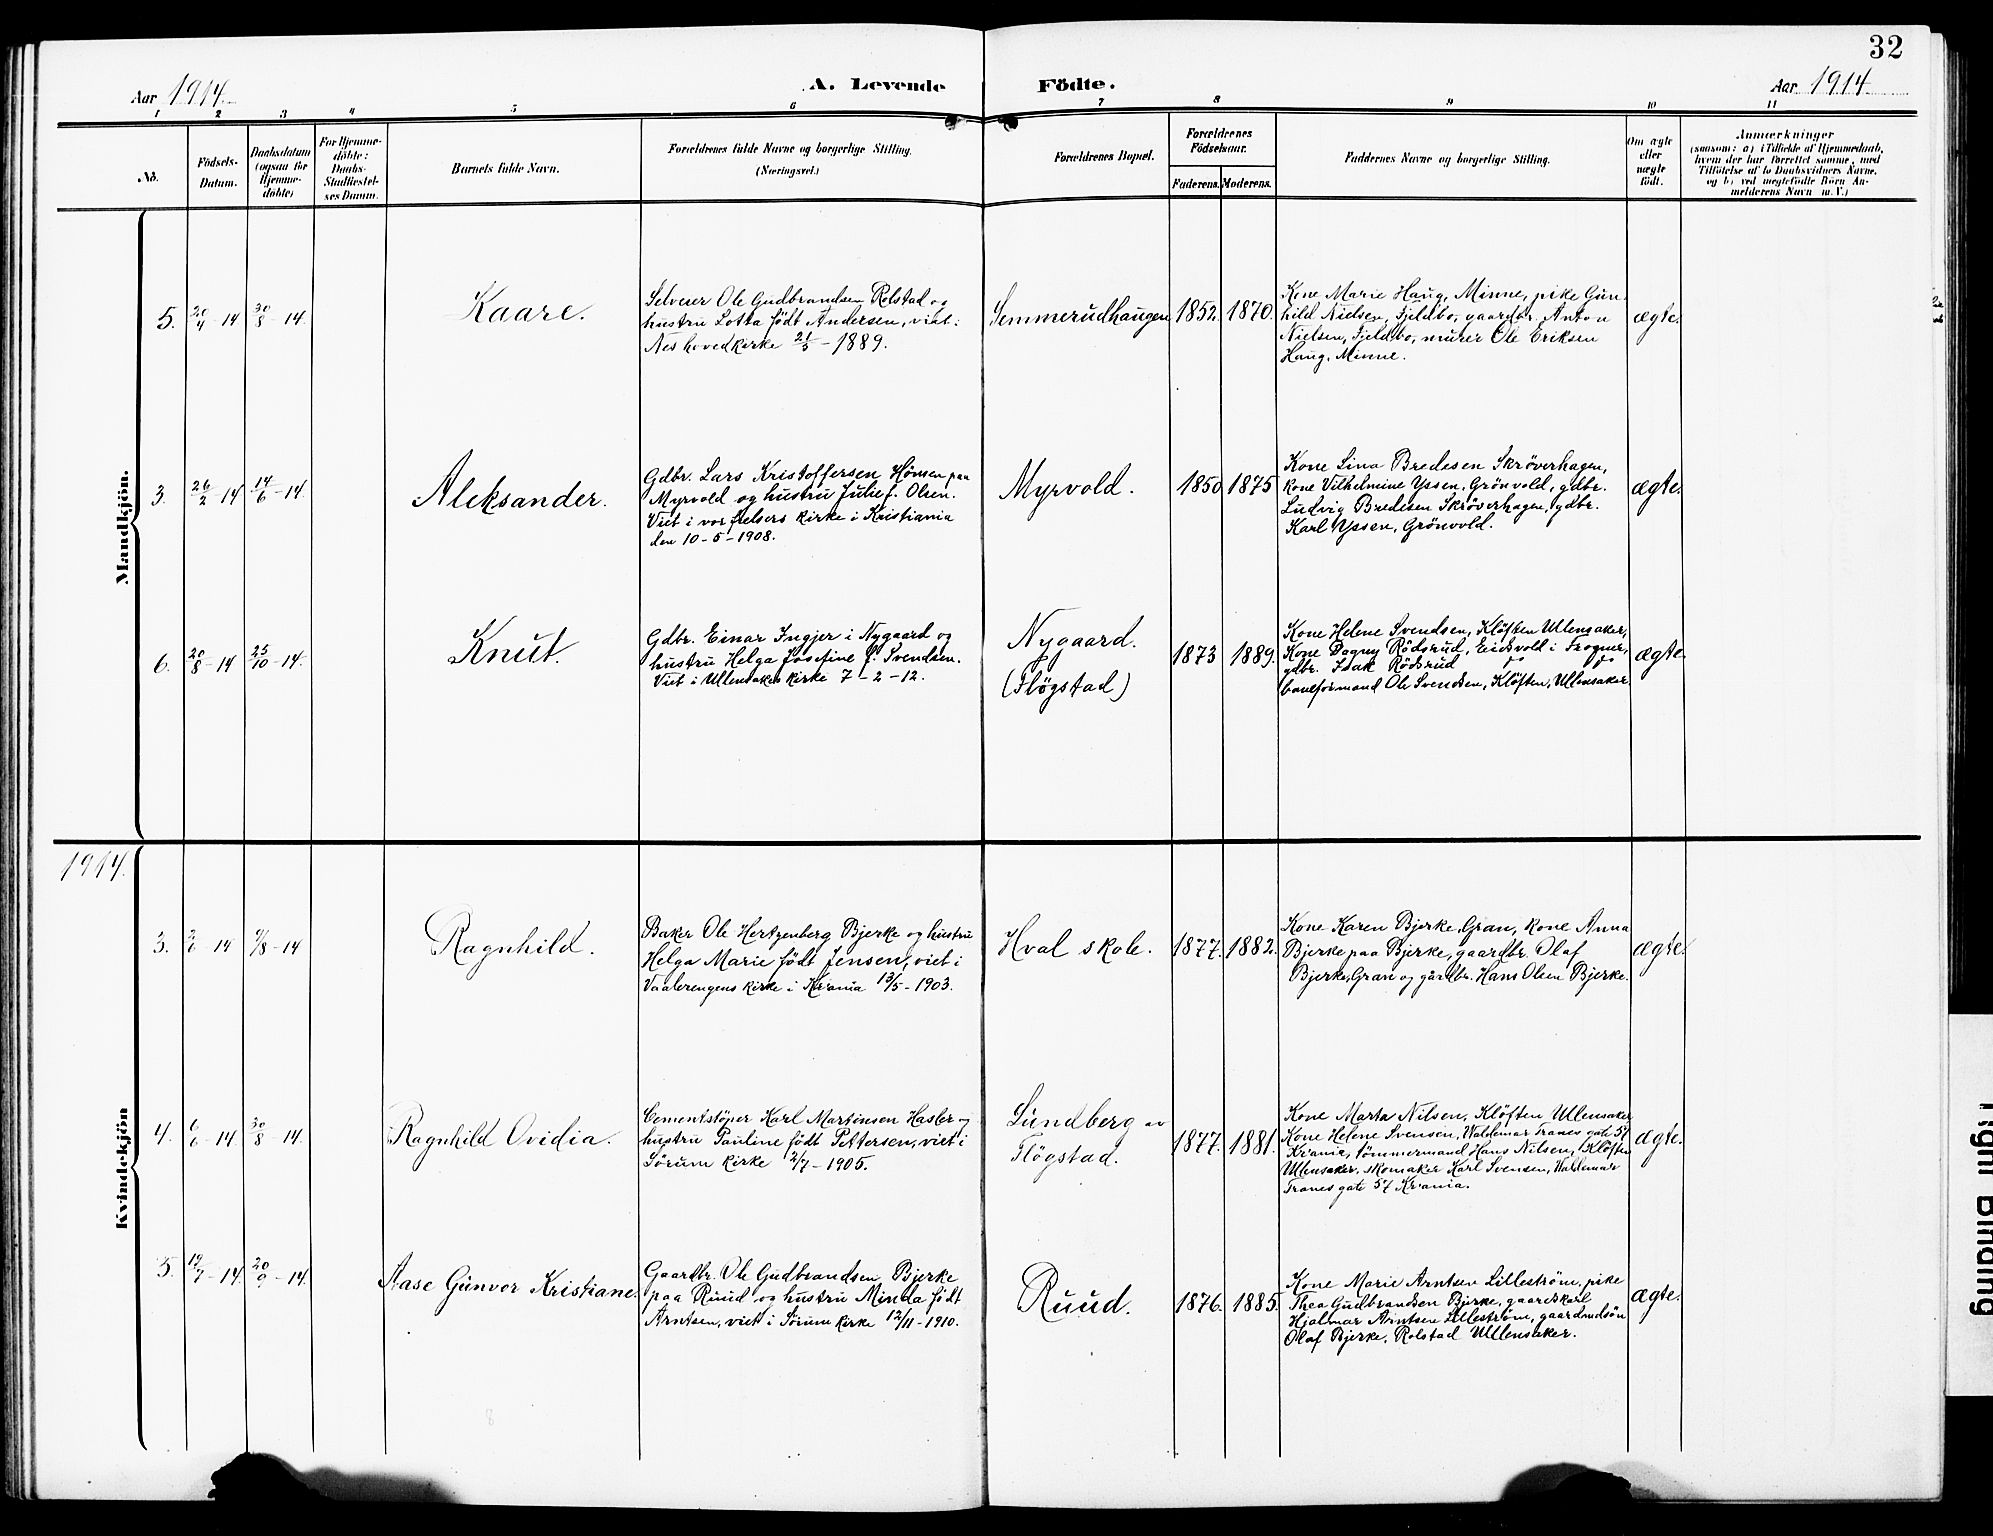 32
Aar 1914.
A. Levende
Födte.
Aar 1914.
1 2 3 4 5 6 7 8 9 10 11
No.
Födsels-
Datum.
Daabsdatum
(ogsaa for
Hjemme-
döbte)
For Hjemme-
döbte:
Daabs-
Stadfæstel-
ses Datum.
Barnets fulde Navn.
Forældrenes fulde Navne og borgerlige Stilling.
(Næringsvei.)
Forældrenes Bopæl.
Forældrenes
Födselsaar.
Faderens.
Moderens.
Faddernes Navne og borgerlige Stilling.
Om ægte
eller
uægte
födt.
Anmærkninger
(saasom: a) i Tilfælde af Hjemmedaab,
hvem der har forrettet samme, med
Tilföielse af to Daabsvidners Navne,
og b) ved uægtefödte Börn An-
melderens Navn m. V.)
Mandkjön.
5.
20/4 - 14
30/8 - 14.
Kaare.
Selveier Ole Gudbrandsen Rolstad og
hustru Lotta födt Andersen, viet:
Nes hovedkirke 21/5 - 1889.
Semmerudhaugen
1852.
1870.
Kone Marie Haug, Minne, pike Gun-
hild Nielsen, Fjeldbo, gaardbr. Anton
Nielsen, Fjeldbo, murer Ole Eriksen
Haug, Minne.
ægte.
3.
26/2 - 14
14/6 - 14.
Aleksander.
Gdbr. Lars Kristoffersen Hönsen paa
Myrvold og hustru Julie f. Olsen.
Viet i vor frelsers kirke i Kristiania
den 10 - 5 - 1908.
Myrvold.
1850
1875
Kone Lina Bredesen Skröverhagen,
Kone Vilhelmine Yssen, Grönvold, gdbr.
Ludvig Bredesen Skröverhagen, gdbr.
Karl Yssen, Grönvold.
ægte.
6.
20/8 - 14
25/10 - 14.
Knut.
Gdbr. Einar Ingjer i Nygaard og
hustru Helga Josefine f. Svendsen.
Viet i Ullensaker kirke 7 - 2 - 12.
Nygaard.
(Flögstad)
1873
1889.
Kone Helene Svendsen, Klöften Ullensaker,
Kone Dagny Rödsrud, Eidsvold i Frogner,
gdbr. Isak Rödsrud do do
baneformand Ole Svendsen, Klöften, Ullensaker.
ægte.
1914.
Kvindekjön
3.
2/6 - 14
9/8 - 14
Ragnhild.
Baker Ole Hertzenberg Bjerke og hustru
Helga Marie födt Jensen, viet i
Vaalerengens kirke i Kr'ania 13/5 - 1903.
Hval skole.
1877.
1882.
Kone Karen Bjerke, Gran, kone Anna
Bjerke paa Bjerke, gaardbr. Olaf
Bjerke, Gran og gårdbr. Hans Olsen Bjerke.
ægte.
4.
6/6 - 14.
30/8 - 14.
Ragnhild Ovidia.
Cementstöper Karl Martinsen Hasler og
hustru Pauline födt Pettersen, viet i
Sörum kirke 2/7 - 1905.
Lundberg av
Flögstad.
1877.
1881.
Kone Marta Nilsen, Klöften Ullensaker
Kone Helene Svensen, Waldemar Tranes gate 57
Kr'ania, tömmermand Hans Nilsen, Klöften
Ullensaker, skomaker Karl Svensen, Waldemar
Tranes gate 57 Kr'ania.
ægte.
5.
19/7 - 14.
20/9 - 14.
Aase Gunvor Kristiane.
Gaardbr. Ole Gudbrandsen Bjerke
paa Ruud og hustru Minda födt
Arntsen, viet i Sörum kirke 12/11 - 1910.
Ruud.
1876.
1885.
Kone Marie Arntsen Lilleström, pike
Thea Gudbrandsen Bjerke, gaardskarl
Hjalmar Arntsen Lilleström, gaardmdsön
Olaf Bjerke, Rolstad Ullensaker.
ægte.
Tight Binding